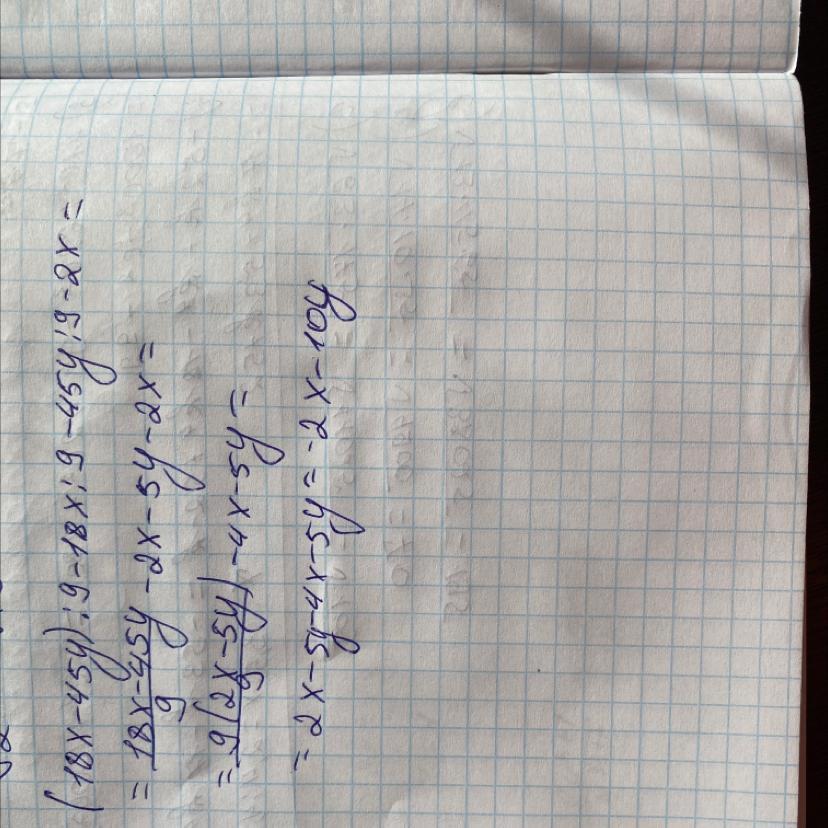 (18x-45y):9-18x:9-45y:9-2x=
= 18x-45y/9 -2x-5y-2x=
= 9(2x-5y)/9 -4x-5y=
= 2x-5y-4x-5y=-2x-10y